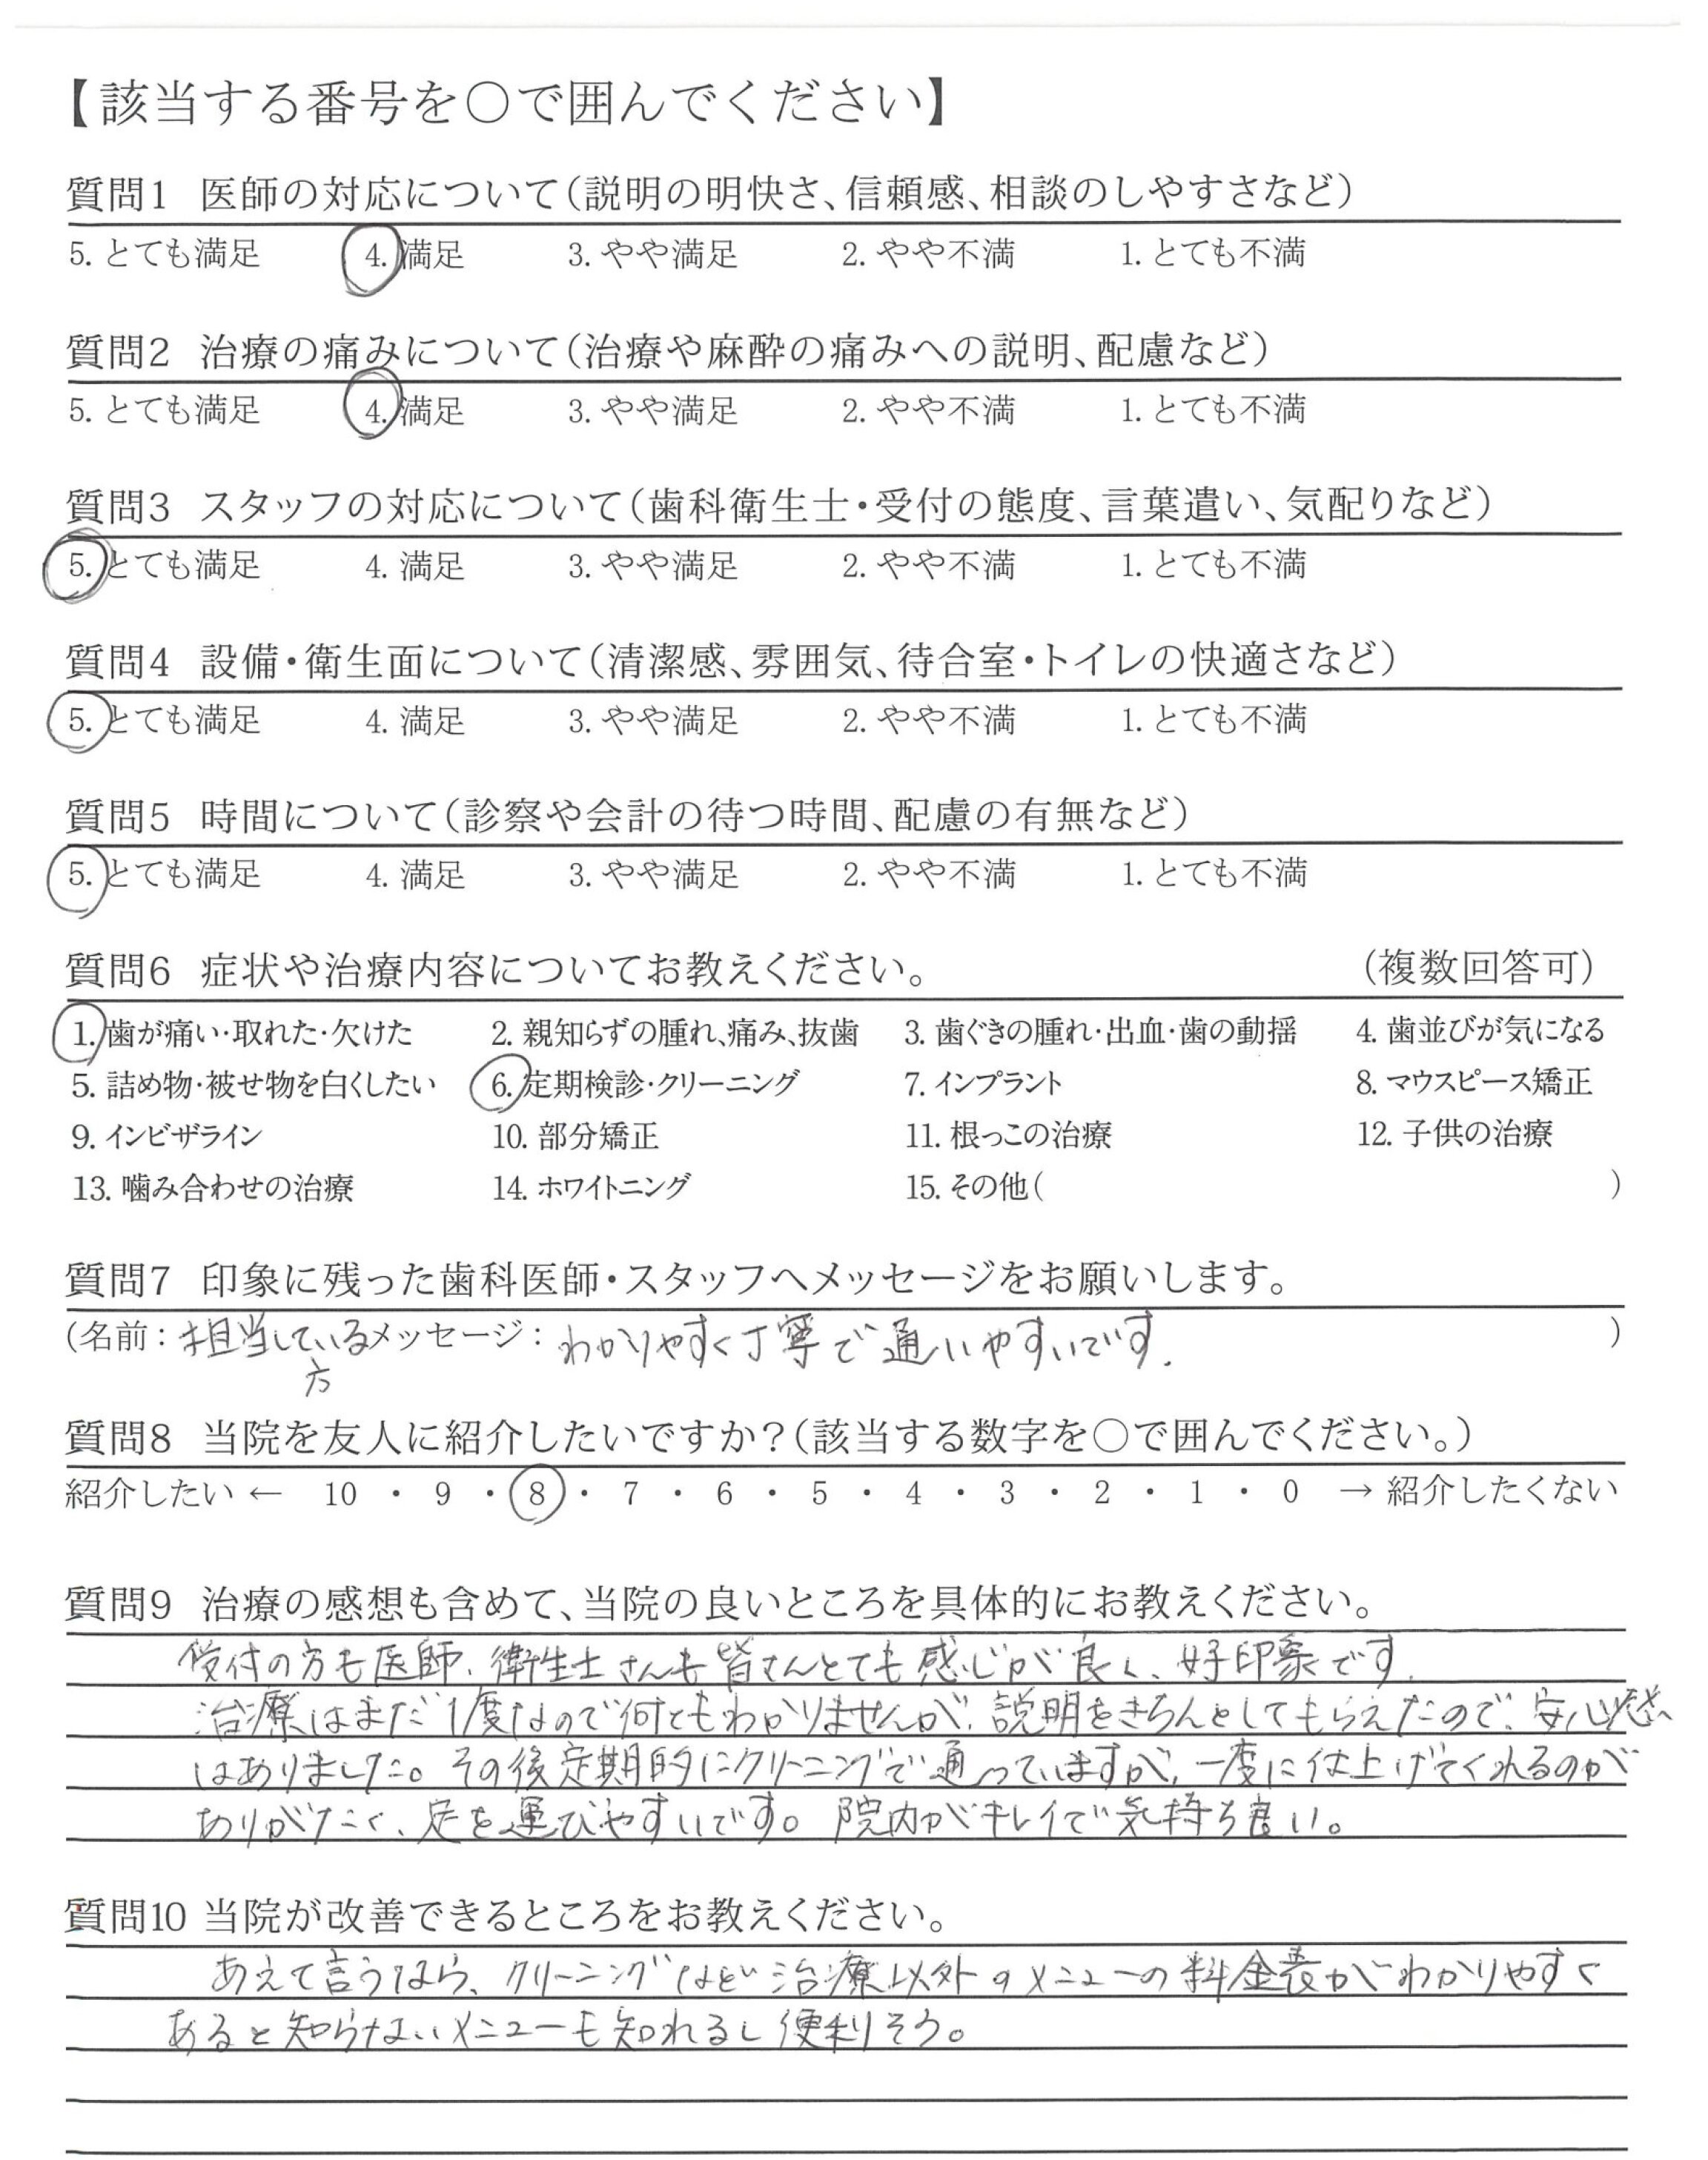 【該当する番号を○で囲んでください】
質問1 医師の対応について（説明の明快さ、信頼感、相談のしやすさなど）
5. とても満足 4. 満足 3. やや満足 2. やや不満 1. とても不満
質問2 治療の痛みについて（治療や麻酔の痛みへの説明、配慮など）
5. とても満足 4. 満足 3. やや満足 2. やや不満 1. とても不満
質問3 スタッフの対応について（歯科衛生士・受付の態度、言葉遣い、気配りなど）
5. とても満足 4. 満足 3. やや満足 2. やや不満 1. とても不満
質問4 設備・衛生面について（清潔感、雰囲気、待合室・トイレの快適さなど）
5. とても満足 4. 満足 3. やや満足 2. やや不満 1. とても不満
質問5 時間について（診察や会計の待つ時間、配慮の有無など）
5. とても満足 4. 満足 3. やや満足 2. やや不満 1. とても不満
質問6 症状や治療内容についてお教えください。 （複数回答可）
1. 歯が痛い・取れた・欠けた 2. 親知らずの腫れ、痛み、抜歯 3. 歯ぐきの腫れ・出血・歯の動揺 4. 歯並びが気になる
5. 詰め物・被せ物を白くしたい 6. 定期検診・クリーニング 7. インプラント 8. マウスピース矯正
9. インビザライン 10. 部分矯正 11. 根っこの治療 12. 子供の治療
13. 噛み合わせの治療 14. ホワイトニング 15. その他（ ）
質問7 印象に残った歯科医師・スタッフへメッセージをお願いします。
（名前：担当している メッセージ：わかりやすく丁寧で通いやすいです. ）
方
質問8 当院を友人に紹介したいですか？（該当する数字を○で囲んでください。）
紹介したい ← 10 ・ 9 ・ 8 ・ 7 ・ 6 ・ 5 ・ 4 ・ 3 ・ 2 ・ 1 ・ 0 → 紹介したくない
質問9 治療の感想も含めて、当院の良いところを具体的にお教えください。
受付の方も医師、衛生士さんも皆さんとても感じが良く、好印象です.
治療はまだ1度なので何ともわかりませんが、説明をきちんとしてもらえたので、安心感
はありました。その後定期的にクリーニングで通っていますが、一度に仕上げてくれるのが
ありがたく、足を運びやすいです。院内がキレイで気持ち良い。
質問10 当院が改善できるところをお教えください。
あえて言うなら、クリーニングなど治療以外のメニューの料金表がわかりやすく
あると知らないメニューも知れるし便利そう。